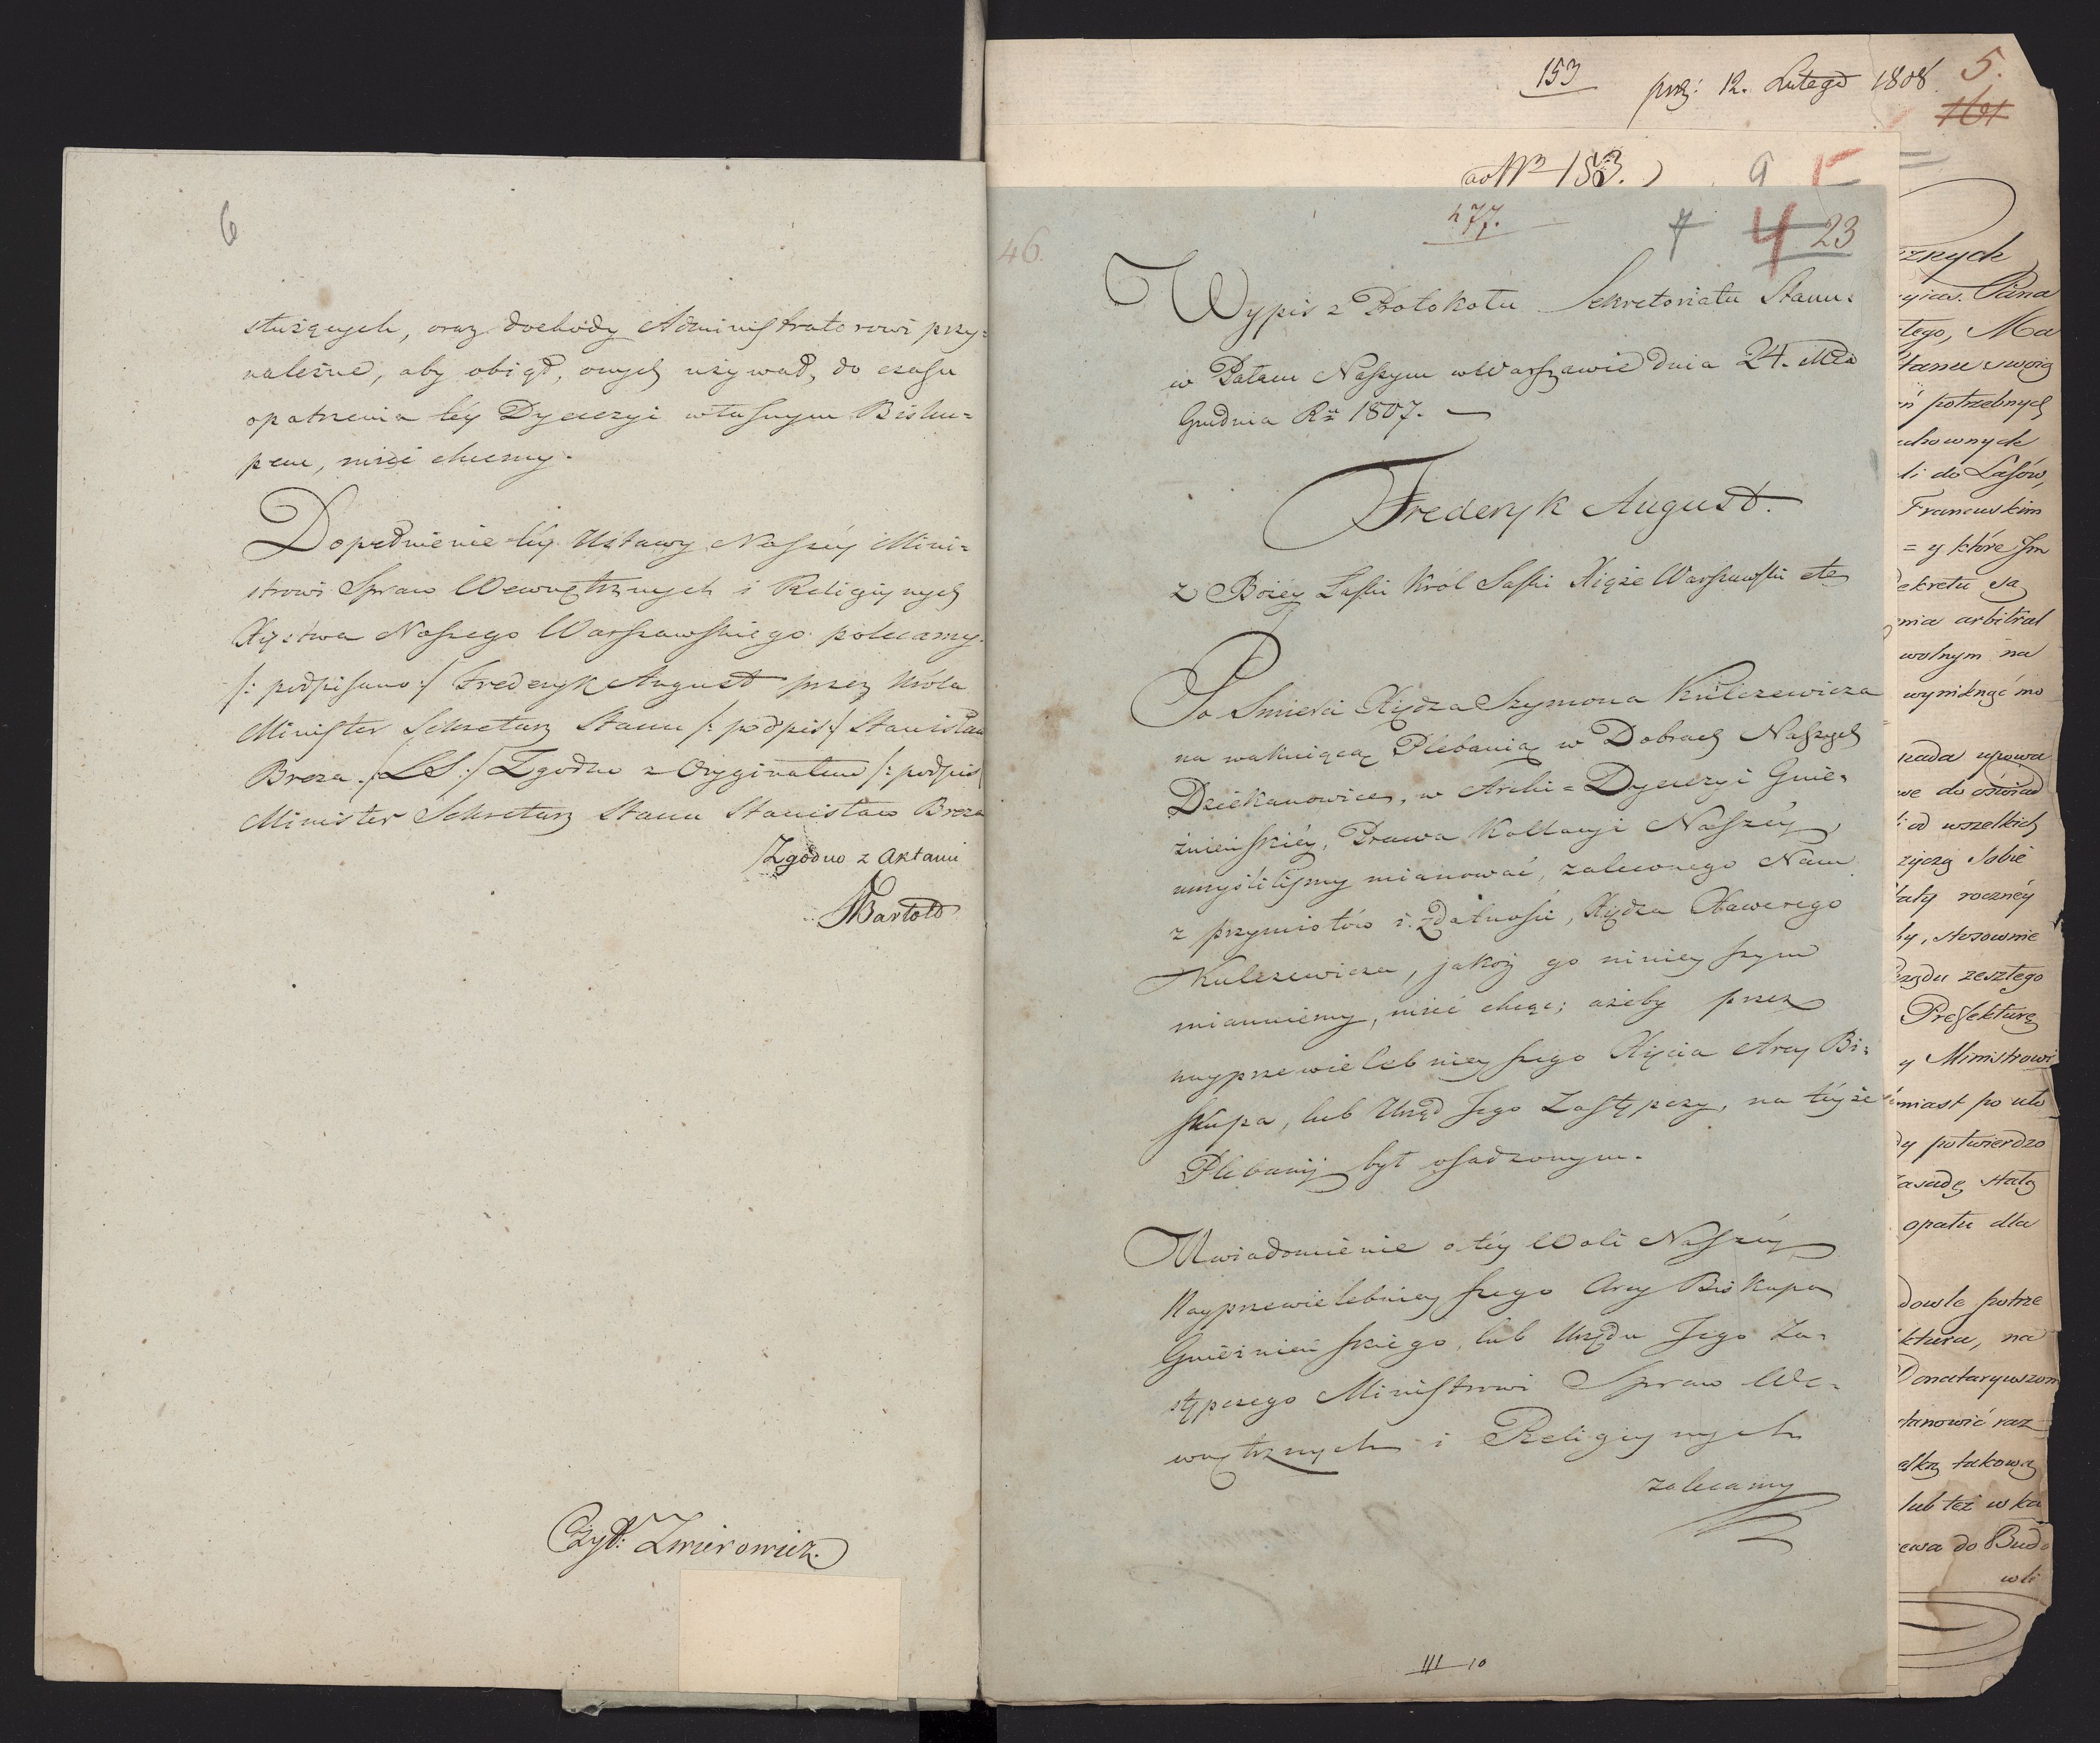 6
służących, oraz dochody Administratorowi przy=
należne, aby objął, onych używał, do czasu
opatrzenia téy Dyecezyi własnym Bisku=
pem, mieć chcemy.
Dopełnienie téy Ustawy Naszéy Mini=
strowi Spraw Wewnętrznych i Religijnych
Xięstwa Naszego Warszawskiego polecamy.
/: podpisano :/ Frederyk August przez Króla
Minister Sekretarz Stanu /: podpis :/ Stanisław
Breza. /: LS :/ Zgodno z Oryginałem /: podpis
Minister Sekretarz Stanu Stanisław Breza
Zgodno z Aktami
Bartold
Czyt: Zwierowicz.
153 prez: 12. Lutego 1808. 5.
161
ad Nro 153. 9 5
477. 7 4 23
46.
Wypis z Protokołu Sekretoriatu Stanu.
w Pałacu Naszym w Warszawie dnia 24. Mca
Grudnia Ru 1807.
Frederyk August.
z Bożey Łaski Król Saski Xiąże Warszawski etc
Po Smierci Xiędza Szymona Kulczewicza
na wakuiącą Plebanią w Dobrach Naszych
Dziekanowice, w Archi=Dyecezyi Gnie=
źnieńskiéy, Prawa Kollacyi Naszéy,
umyśliliśmy mianować, zaleconego Nam
z przymiotów i zdatności, Xiędza Xawerego
Kulczewicza, jakoż go ninieyszym
mianuiemy, mieć chcąc; ażeby przez
nayprzewielebnieyszego Xięcia Arcy Bi=
skupa, lub Urząd Jego Zastępczy, na téyże
Plebanij był osadzonym.
Uwiadomienie o téy Woli Naszéy
Nayprzewielebnieyszego Arcy Biskupa
Gnieźnieńskiego, lub Urzędu Jego Za=
stępczego Ministrowi Spraw We=
wnętrznych i Religijnych
zalecamy
III 10
znych
Pana
tego, Ma
Stanu swoią
potrzebnych
uchownych
li do Lasów,
Francuskim
= y które Jm
Dekretu są
nia arbitral
wolnym na
wyniknąć mo
pada upowa
we do oświad
i od wszelkich
życzą Sobie
łaty rocznéy
by, stosownie
Rządu zeszłego
Prefekturę
y Ministrowi
miast po uło
dy potwierdzo
zasadę stałą
opału dla
dowle potrze
ktura, na
Donataryuszom
stanowić raz
elką takową
lub też w ka
ewa do Budo
wli